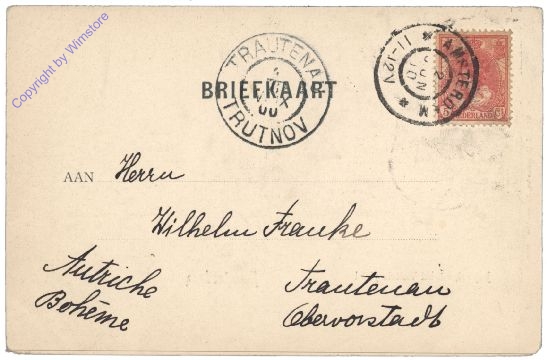 Copyright by Wimstore
TRAUTENAU
TRUTNOV
BRIEFKAART
AMSTERDAM
11-12V
JUN
NEDERLAND
AAN Herrn
Wilhelm Franke
Trautenau
Obervorstadt
Autriche
Bohême